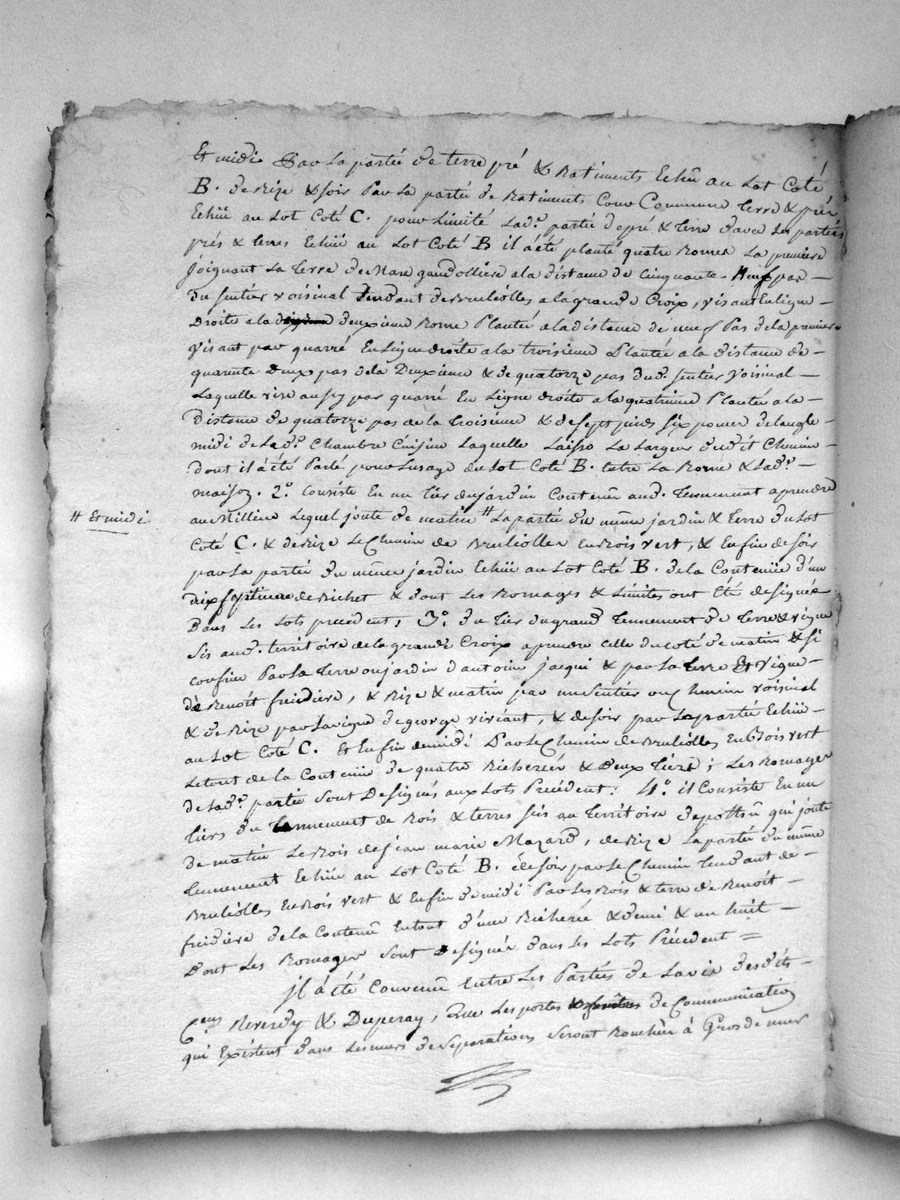 Et midi Par la partie de terre pré & Batiments Echû au Lot Coté
B. de Bize & soir Par la partie de Batiments Cour Commune terre & pré
Echüe au Lot Coté C. pour Limité Lad.e partie de pré & terre d'avec les parties
prés & terres Echüe au Lot Coté B il a été planté quatre Bornes La premiere
joignant La terre de Marc gaudolliere a la distance de Cinquante Neuf pas
du sentier voisinal tendant de Brulliolles a la grande Croix, visant En ligne
Droite a la deuxieme Borne Plantée a la distance de neuf Pas de la premiere
visant par quarré En Ligne droite a la troisieme Plantée a la distance de
quarante deux pas de la Deuxieme & de quatorze pas dud. sentier Voisinal
Laquelle vise aussy par quarré En Ligne droite a la quatrieme Plantée a la
distance de quatorze pas de la troisieme & de sept pieds six pouces de l'angle
midi de Lad.e Chambre Cuisine Laquelle Laisse La Largeur dudit Chemin
dont il a été Parlé pour l'usage du Lot Coté B. entre La Borne & Lad.e
maison. 2.o Consiste En un tier du jardin Contenû aud. tennement a prendre
au Millieu Lequel joute de matin # La partie du même jardin & terre du Lot
# Et midi
Coté C. & de Bize Le Chemin de Brulliolles En Bois vert, & Enfin de soir
par La partie du même jardin Echüe au Lot Coté B. de la Contenüe d'un
dix septieme de Bichet & dont Les Bornages & Limites ont Eté designée
Dans Les Lots precedent; 3.o du tier du grand tennement de terre & vigne
sis aud. territoire de la grande Croix a prendre celle du coté de matin & si
confine Par La terre ou jardin d'antoine jacqui & par La terre Et vigne
de Benoît freidiere, & Bize & matin par un sentier ou Chemin voisinal
& de Bize par La vigne de george viriant, & de soir par La partie Echüe
au Lot Coté C. Et Enfin de midi Par Le Chemin de Brulliolles En Bois vert
Le tout de la Contenüe de quatre Bicherées & Deux tiers; Les Bornages
de Lad.e partie sont Designés aux Lots Précédent: 4.o il Consiste En un
tiers du tennement de Bois & terres sis au territoire de qui joute
De matin Le Bois de jean marie Mazard, de Bize La partie du même
tennement Echüe au Lot Coté B. de soir par Le Chemin tendant de
Brulliolles En Bois vert & Enfin de midi Par Les Bois & terre de Benoît
freidiere de la Contenüe En tout d'une Bicherée & demi & un huit
Dont Les Bornages sont Designée dans Les Lots Précédent =
il a été Convenû Entre Les Parties de L'avis desdits
C.ens Reverdy & Duperay, Que Les portes & fenêtres de Communication
qui Existent dans Les murs de separations seront Bouchée à Gros de mur